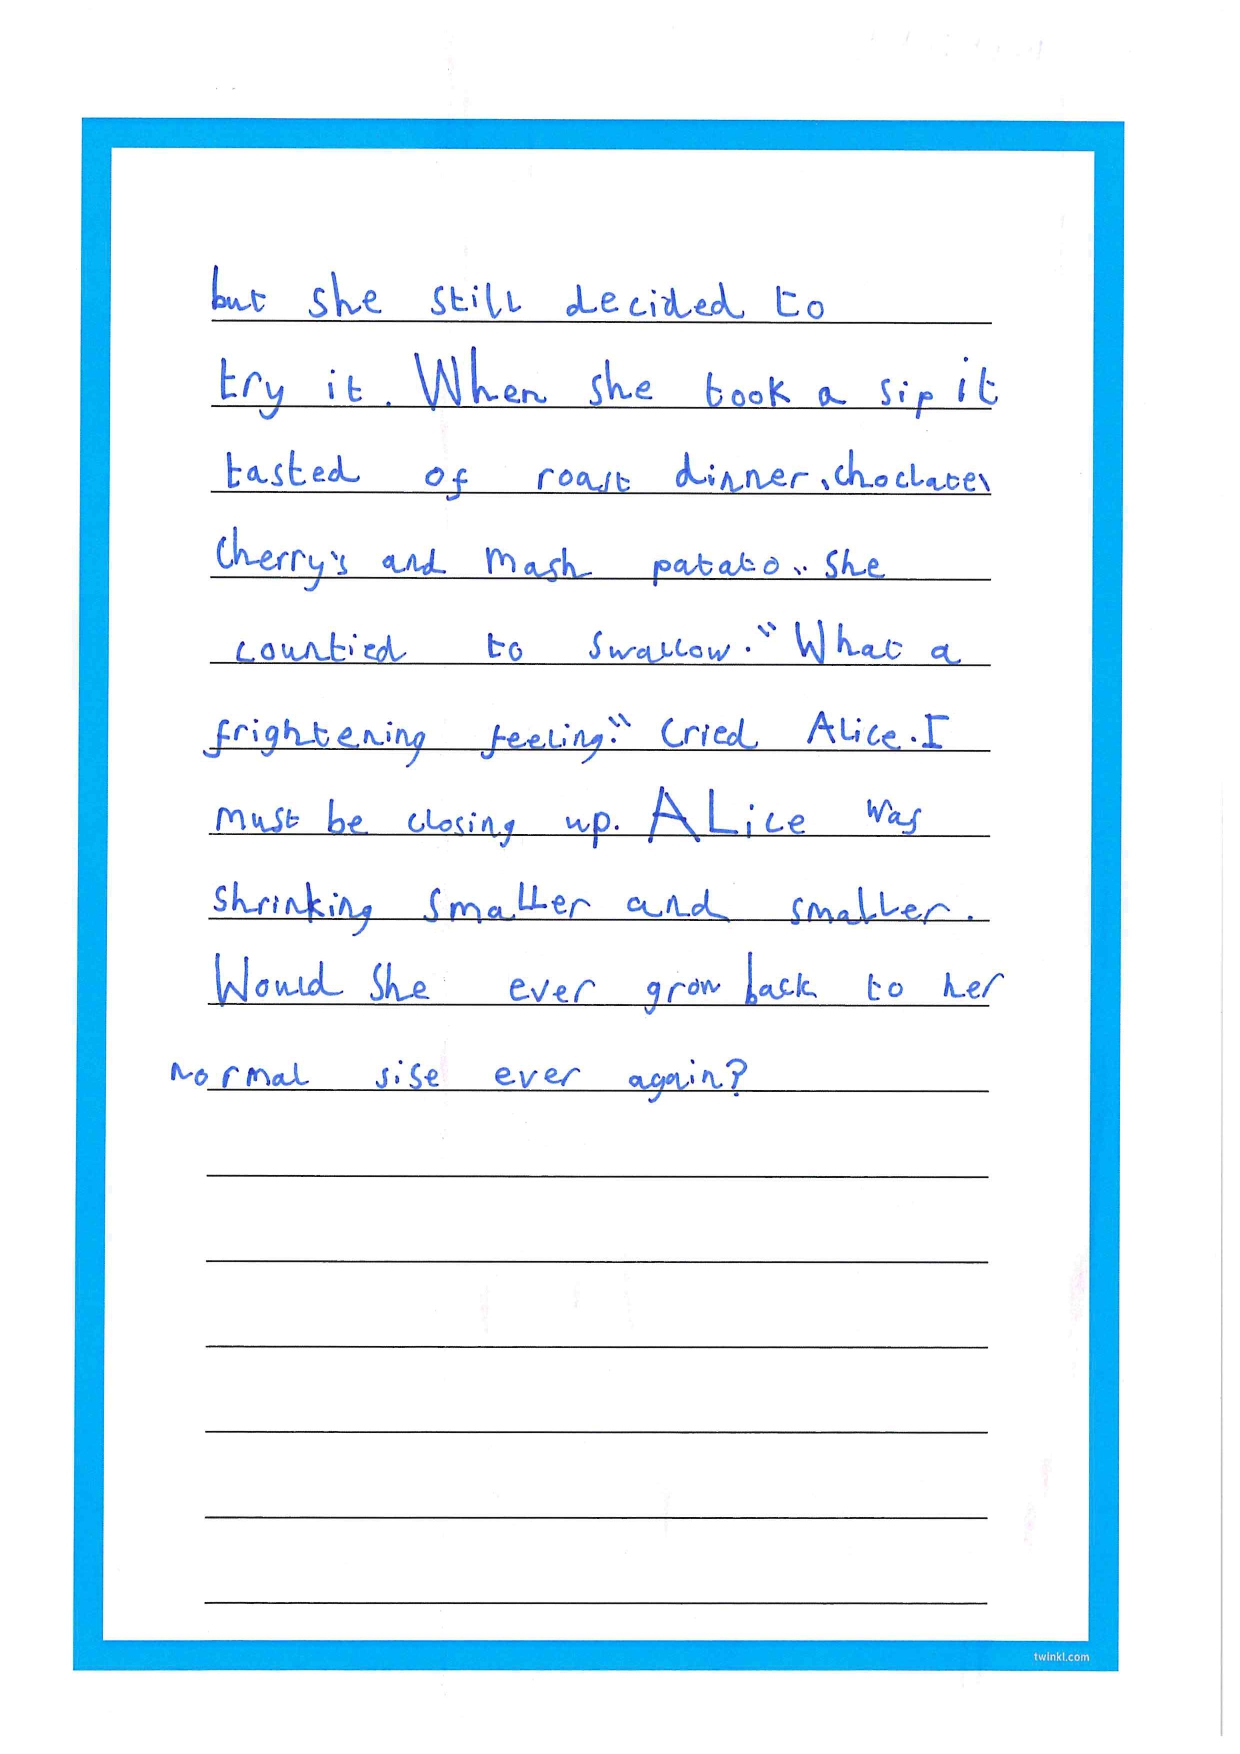 but she still decided to
try it. When she took a sip it
tasted of roast dinner, choclate,
Cherry's and mash patato.. She
countied to swallow. "What a
frightening feeling." Cried Alice. I
must be closing up. ALice was
shrinking smaller and smaller.
Would She ever grow back to her
normal sise ever again?
twinkl.com